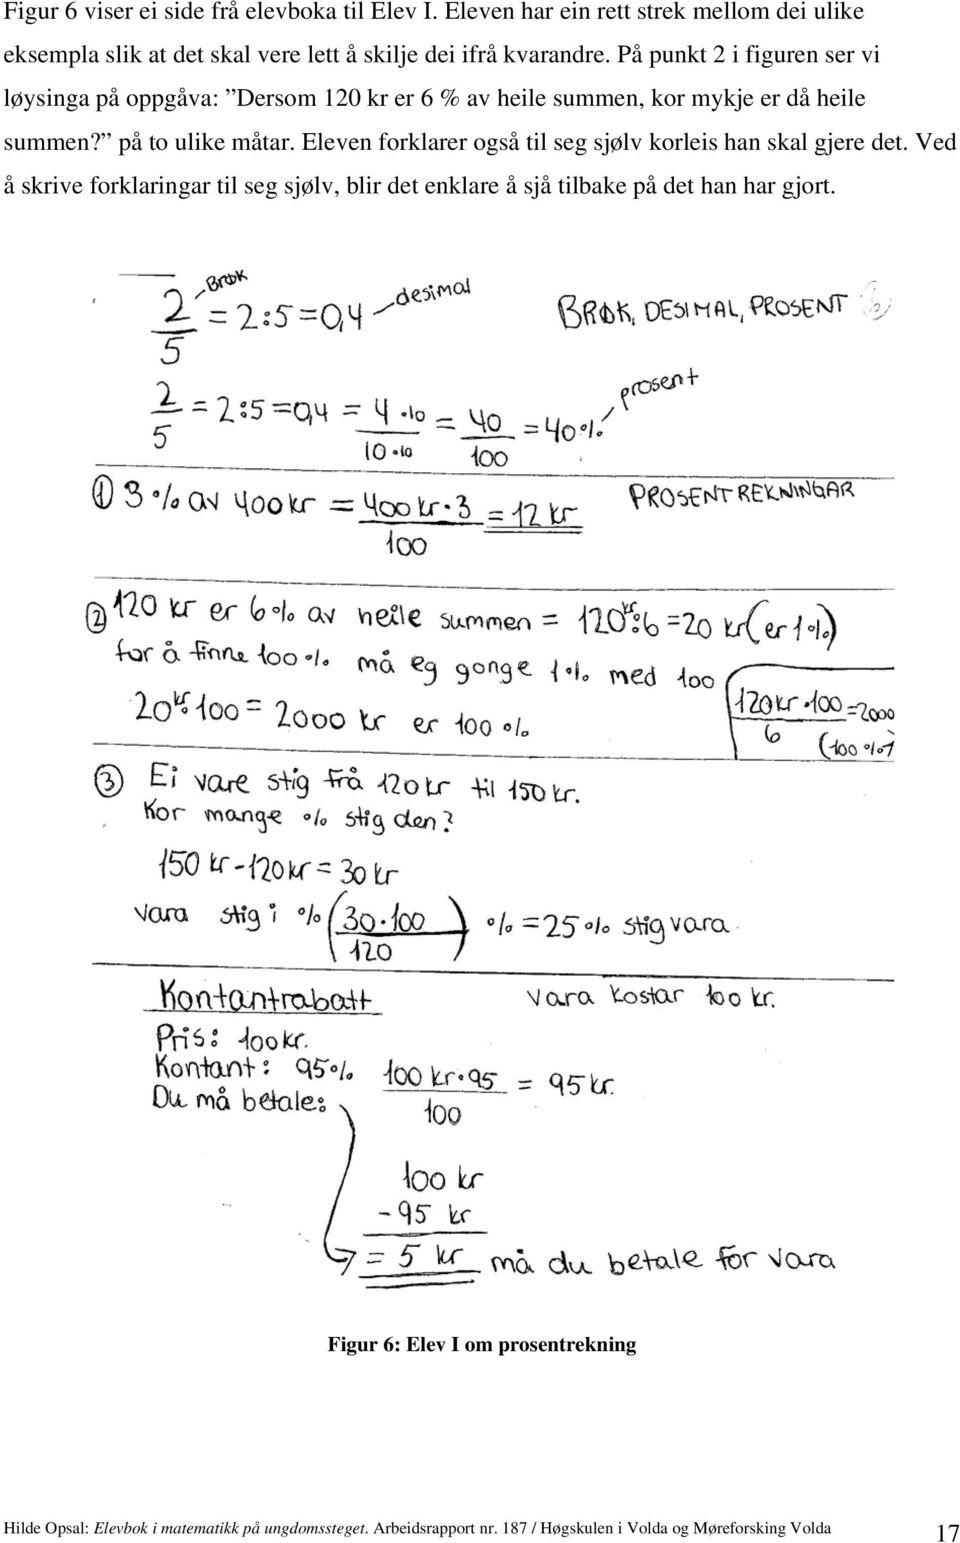 Figur 6 viser ei side frå elevboka til Elev I. Eleven har ein rett strek mellom dei ulike
eksempla slik at det skal vere lett å skilje dei ifrå kvarandre. På punkt 2 i figuren ser vi
løysinga på oppgåva: ”Dersom 120 kr er 6 % av heile summen, kor mykje er då heile
summen?” på to ulike måtar. Eleven forklarer også til seg sjølv korleis han skal gjere det. Ved
å skrive forklaringar til seg sjølv, blir det enklare å sjå tilbake på det han har gjort.
2/5 = 2:5 = 0,4 Brøk desimal BRØK, DESIMAL, PROSENT
2/5 = 2:5 = 0,4 = 4·10/10·10 = 40/100 = 40% prosent
① 3% av 400 kr = 400 kr·3/100 = 12 kr PROSENTREKNINGAR
② 120 kr er 6% av heile summen = 120 kr:6 = 20 kr (er 1%)
for å finne 100% må eg gonge 1% med 100
20 kr·100 = 2000 kr er 100% 120 kr·100/6 = 2000 (100%)
③ Ei vare stig frå 120 kr til 150 kr.
Kor mange % stig den?
150 kr - 120 kr = 30 kr
Vara stig i % (30·100/120) % = 25% stig vara.
Kontantrabatt Vara kostar 100 kr.
Pris: 100 kr.
Kontant: 95% 100 kr·95/100 = 95 kr.
Du må betale:
100 kr
- 95 kr
= 5 kr må du betale for vara
Figur 6: Elev I om prosentrekning
Hilde Opsal: Elevbok i matematikk på ungdomssteget. Arbeidsrapport nr. 187 / Høgskulen i Volda og Møreforsking Volda 17